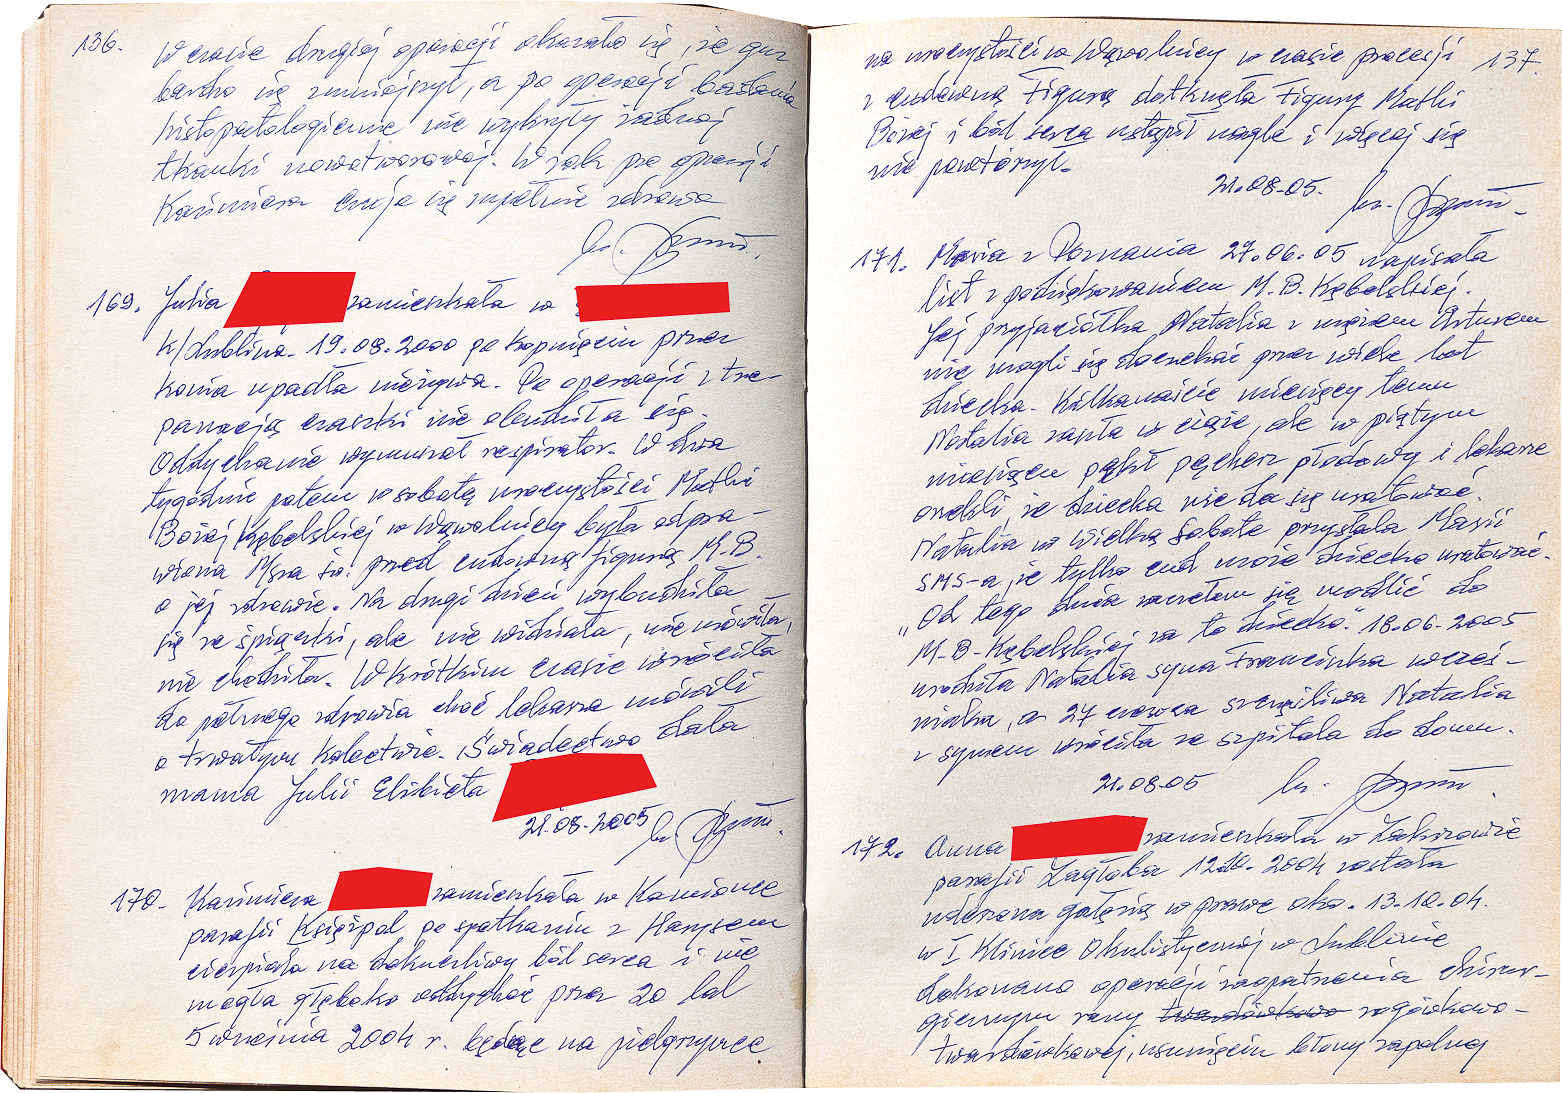 136.
W czasie drugiej operacji okazało się, że guz
bardzo się zmniejszył, a po operacji badania
histopatologiczne nie wykryły żadnej
tkanki nowotworowej. W rok po operacji
Kazimiera czuje się zupełnie zdrowa
ks.
169. Julia zamieszkała w
K/Lublina. 19.08.2000 po kopnięciu przez
konia upadła nieżywa. Po operacji z tre-
panacją czaszki nie obudziła się.
Oddychanie wymuszał respirator. W dwa
tygodnie potem w sobotę uroczystości Matki
Bożej Kębelskiej w Wąwolnicy była odpra-
wiona Msza św. przed cudowną figurą M.B.
o jej zdrowie. Na drugi dzień wybudziła
się ze śpiączki, ale nie widziała, nie mówiła,
nie chodziła. W krótkim czasie wróciła
do pełnego zdrowia choć lekarze mówili
o trwałym kalectwie. Świadectwo dała
mama Julii Elżbieta
21.08.2005 ks.
170. Kazimiera zamieszkała w Kamionce
parafii Księżpol po spotkaniu z
cierpiała na dokuczliwy ból serca i nie
mogła głęboko oddychać przez 20 lat
5 września 2004 r. będąc na pielgrzymce
137.
na uroczystości w Wąwolnicy w czasie procesji
z cudowną Figurą dotknęła Figury Matki
Bożej i ból serca ustąpił nagle i więcej się
nie powtórzył.
21.08.05.
ks.
171. Maria z Poznania 27.06.05 napisała
list z podziękowaniem M.B. Kębelskiej.
Jej przyjaciółka Natalia z mężem Arturem
nie mogli się doczekać przez wiele lat
dziecka. Kilkanaście miesięcy temu
Natalia zaszła w ciążę, ale w piątym
miesiącu pękł pęcherz płodowy i lekarze
orzekli, że dziecka nie da się uratować.
Natalia w Wielką Sobotę przysłała Marii
SMS-a, że tylko cud może dziecko uratować.
"Od tego dnia zaczęłam się modlić do
M.B. Kębelskiej za to dziecko". 18.06.2005
urodziła Natalia syna Franciszka wcześ-
niaka, a 27 czerwca szczęśliwa Natalia
z synem wróciła ze szpitala do domu.
21.08.05 ks.
172. Anna zamieszkała w Zakrzowie
parafii Zagłoba 12.10.2004 została
uderzona gałęzią w prawe oko. 13.10.04.
w I Klinice Okulistycznej w Lublinie
dokonano operacji zaopatrzenia chirur-
gicznym rany twardówkowo rogówkowo-
twardówkowej, usunięciu błony zapalnej